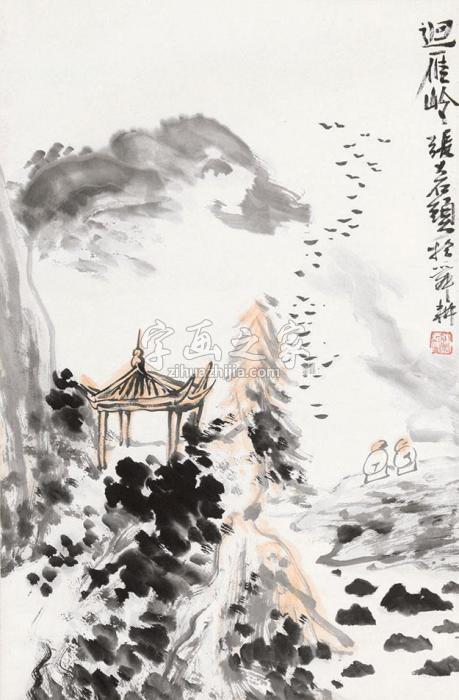 迴雁岭 張大石頭 於筆耕
字画之家
zihuazhijia.com